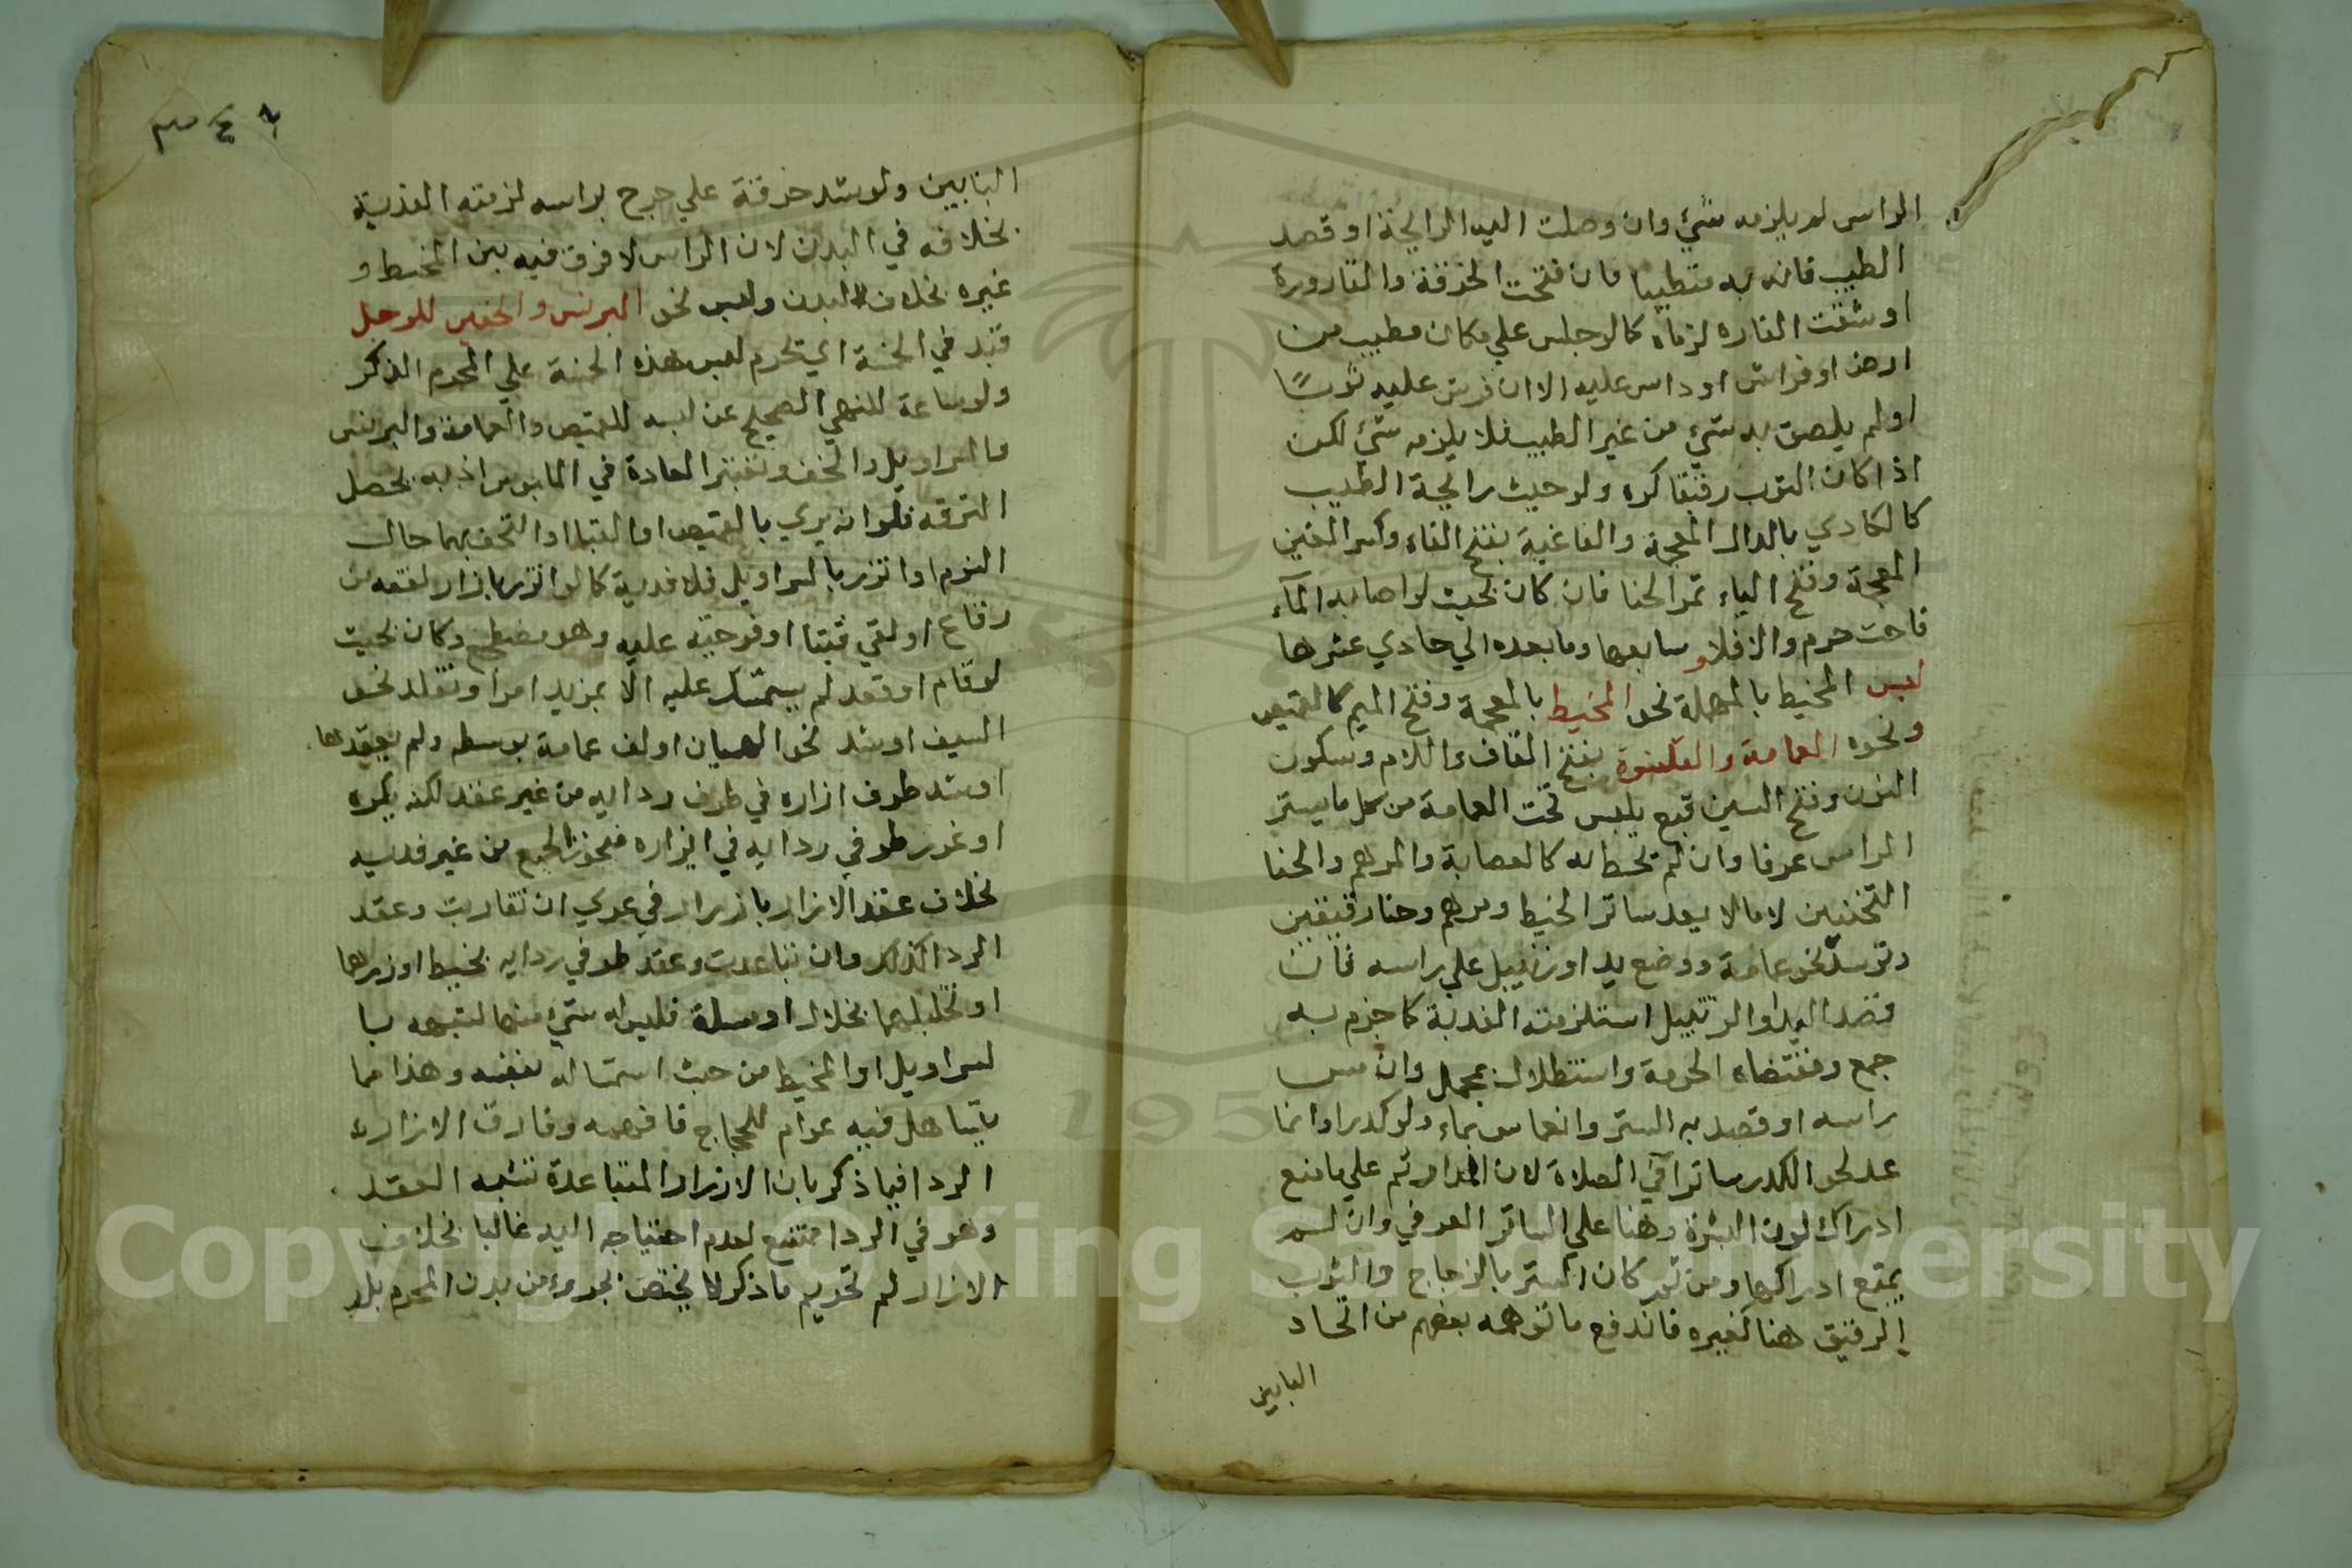 الراس لم يلزمه شيء وان وصلت اليه الرايحة او قصد
الطيب فانه به متطيبا فان فتحت الخرقة والقارورة
او شقت الفاره لزماه كالوجلس علي مكان مطيب من
ارض او فراش او داس عليه الا ان فرش عليه ثوبًا
او لم يلصق به شيء من غير الطيب فلا يلزمه شيء لكن
اذا كان الثوب رقيقا كره ولو حيث رايحة الطيب
كالكادي بالدال المعجمة والفاغية بفتح الفاء وكسر الغين
المعجمة وفتح الياء تمر الحنا فان كان بحيث لو اصابه المآء
فاحت حرم والا فلا و سابعها وما بعده الي حادي عشرها
لبس المحيط بالمهملة نحو المخيط بالمعجمة وفتح الميم كالقميص
ونحوه العمامة والقلنسوة بفتح القاف واللام وسكون
النون وفتح السين قبع يلبس تحت العمامة من كل ما يستر
الراس عرفا وان لم يحط به كالعصابة والمرهم والحنا
الثخنيين لا مالا يعد ساتر الخيط ومرهم وحنا رقيقين
وتوسد نحو عمامة ووضع يد او زنبيل علي راسه فان
قصد اليد او الزنبيل استلزمته الفدية كما جزم به
جمع ومقتضاه الحرمة واستظلال بمحمل وان مس
راسه او قصد به الستر وانغماس بماء ولو كدرا وانما
عد نحو الكدر ساترا في الصلاة لان المدار ثم علي مامنع
ادراك لون البشرة وهنا علي الساتر العرفي وان لم
يمنع ادراكها ومن ثم كان الستر بالزجاج والثوب
الرقيق هنا كغيره فاندفع ما توهمه بعضهم من اتحاد
البابين
البابين ولو شد خرقة علي جرح براسه لزمته الفدية
بخلافه في البدن لان الراس لا فرق فيه بين المخيط و
غيره بخلاف البدن ولبس نحو البرنس والخفين للرجل
قيد في الخمسة اي يحرم لبس هذه الخمسة علي المحرم الذكر
ولو ساعة للنهي الصحيح عن لبسه للقميص والعمامة والبرنس
والسراويل والخف وتعتبر العادة في الملبوس اذ به يحصل
الترفه فلو ارتدي بالقميص او القبا او التحف بهما حال
النوم او اتزر بالسراويل فلا فدية كالو اتزر بازار لفقه من
رقاع او لقي قبا او فرجية عليه وهو مضطجع وكان بحيث
لو قام او قعد لم يستمسك عليه الا بمزيد امر او تقلد نحو
السيف او شد نحو الهميان او لف عمامة بوسطه ولم يعقدها
او شد طرف ازاره في طرف ردايه من غير عقد لكنه يكره
او غرز طرفي ردايه في ازاره فيجوز الجميع من غير فدية
بخلاف عقد الازار بازرار في عري ان تقاربت وعقد
الردا كذلك وان تباعدت وعقد طرفي ردايه بخيط او زرهما
او تخليلهما بخلال او مسلة فليس له شيء منها لشبهه با
لسراويل او المخيط من حيث استمساكه بنفسه وهذا مما
يتساهل فيه عوام الحجاج فافهمه وفارق الازار
الردا فيما ذكر بان الازرار المتباعدة تشبه العقد
وهو في الردا ممتنع لعدم احتياجه اليه غالبا بخلاف
الازار ثم تحريم ما ذكر لا يختص بجزء من بدن المحرم بل
Copyright © King Saud University
195